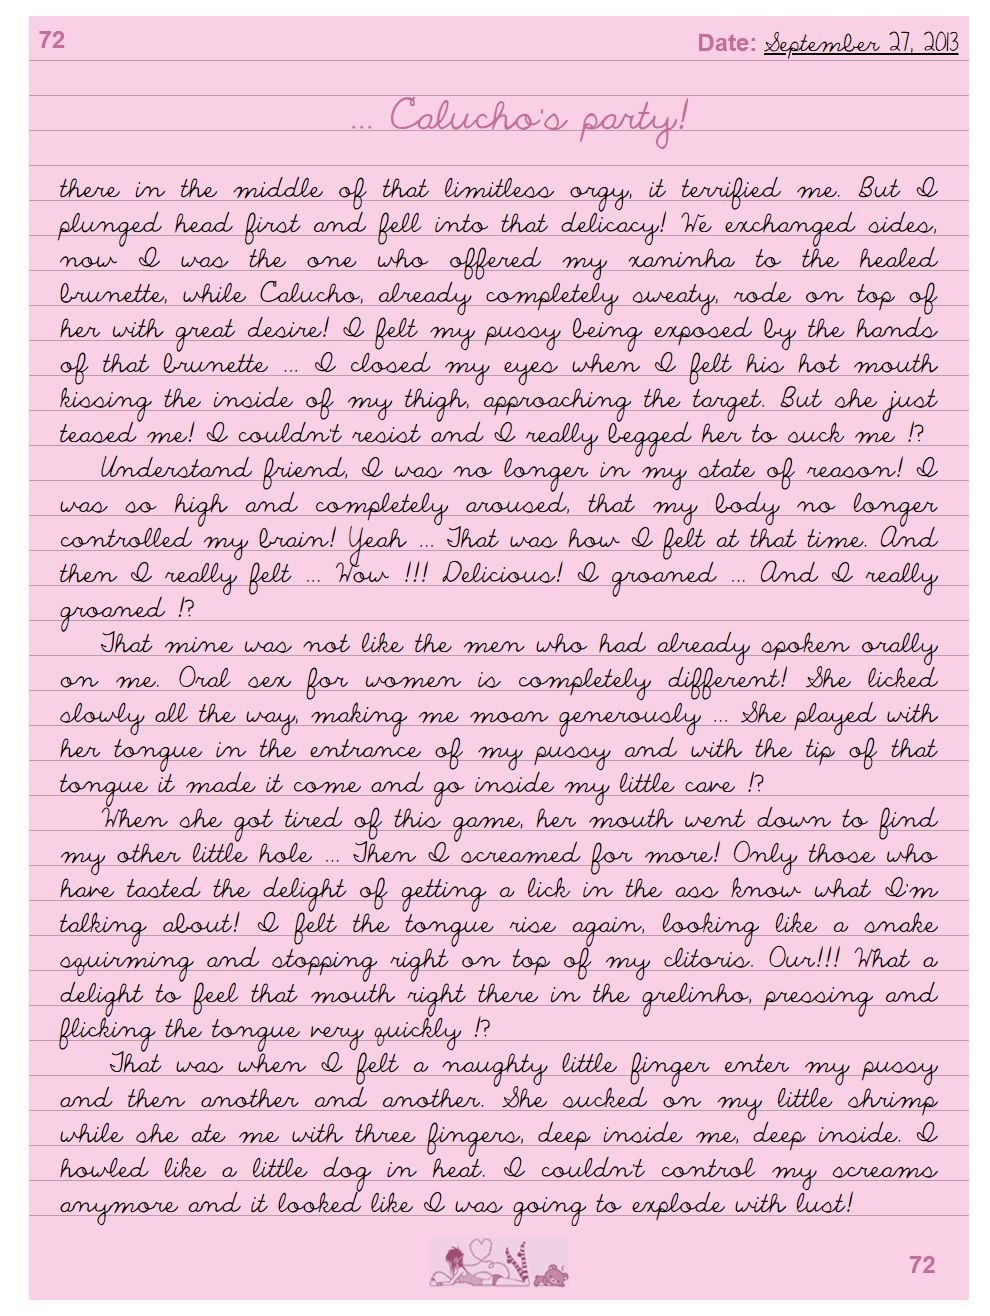 72
Date: September 27, 2013
... Calucho's party!
there in the middle of that limitless orgy, it terrified me. But I
plunged head first and fell into that delicacy! We exchanged sides,
now I was the one who offered my xaninha to the healed
brunette, while Calucho, already completely sweaty, rode on top of
her with great desire! I felt my pussy being exposed by the hands
of that brunette ... I closed my eyes when I felt his hot mouth
kissing the inside of my thigh, approaching the target. But she just
teased me! I couldn't resist and I really begged her to suck me !?
Understand friend, I was no longer in my state of reason! I
was so high and completely aroused, that my body no longer
controlled my brain! Yeah ... That was how I felt at that time. And
then I really felt ... Wow !!! Delicious! I groaned ... And I really
groaned !?
That mine was not like the men who had already spoken orally
on me. Oral sex for women is completely different! She licked
slowly all the way, making me moan generously ... She played with
her tongue in the entrance of my pussy and with the tip of that
tongue it made it come and go inside my little cave !?
When she got tired of this game, her mouth went down to find
my other little hole ... Then I screamed for more! Only those who
have tasted the delight of getting a lick in the ass know what I'm
talking about! I felt the tongue rise again, looking like a snake
squirming and stopping right on top of my clitoris. Our!!! What a
delight to feel that mouth right there in the grelinho, pressing and
flicking the tongue very quickly !?
That was when I felt a naughty little finger enter my pussy
and then another and another. She sucked on my little shrimp
while she ate me with three fingers, deep inside me, deep inside. I
howled like a little dog in heat. I couldn't control my screams
anymore and it looked like I was going to explode with lust!
72